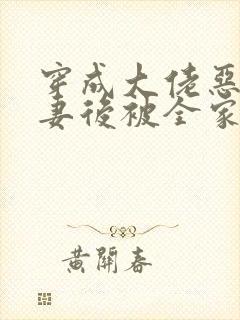 穿成大佬惡
妻後被全家
黃開春